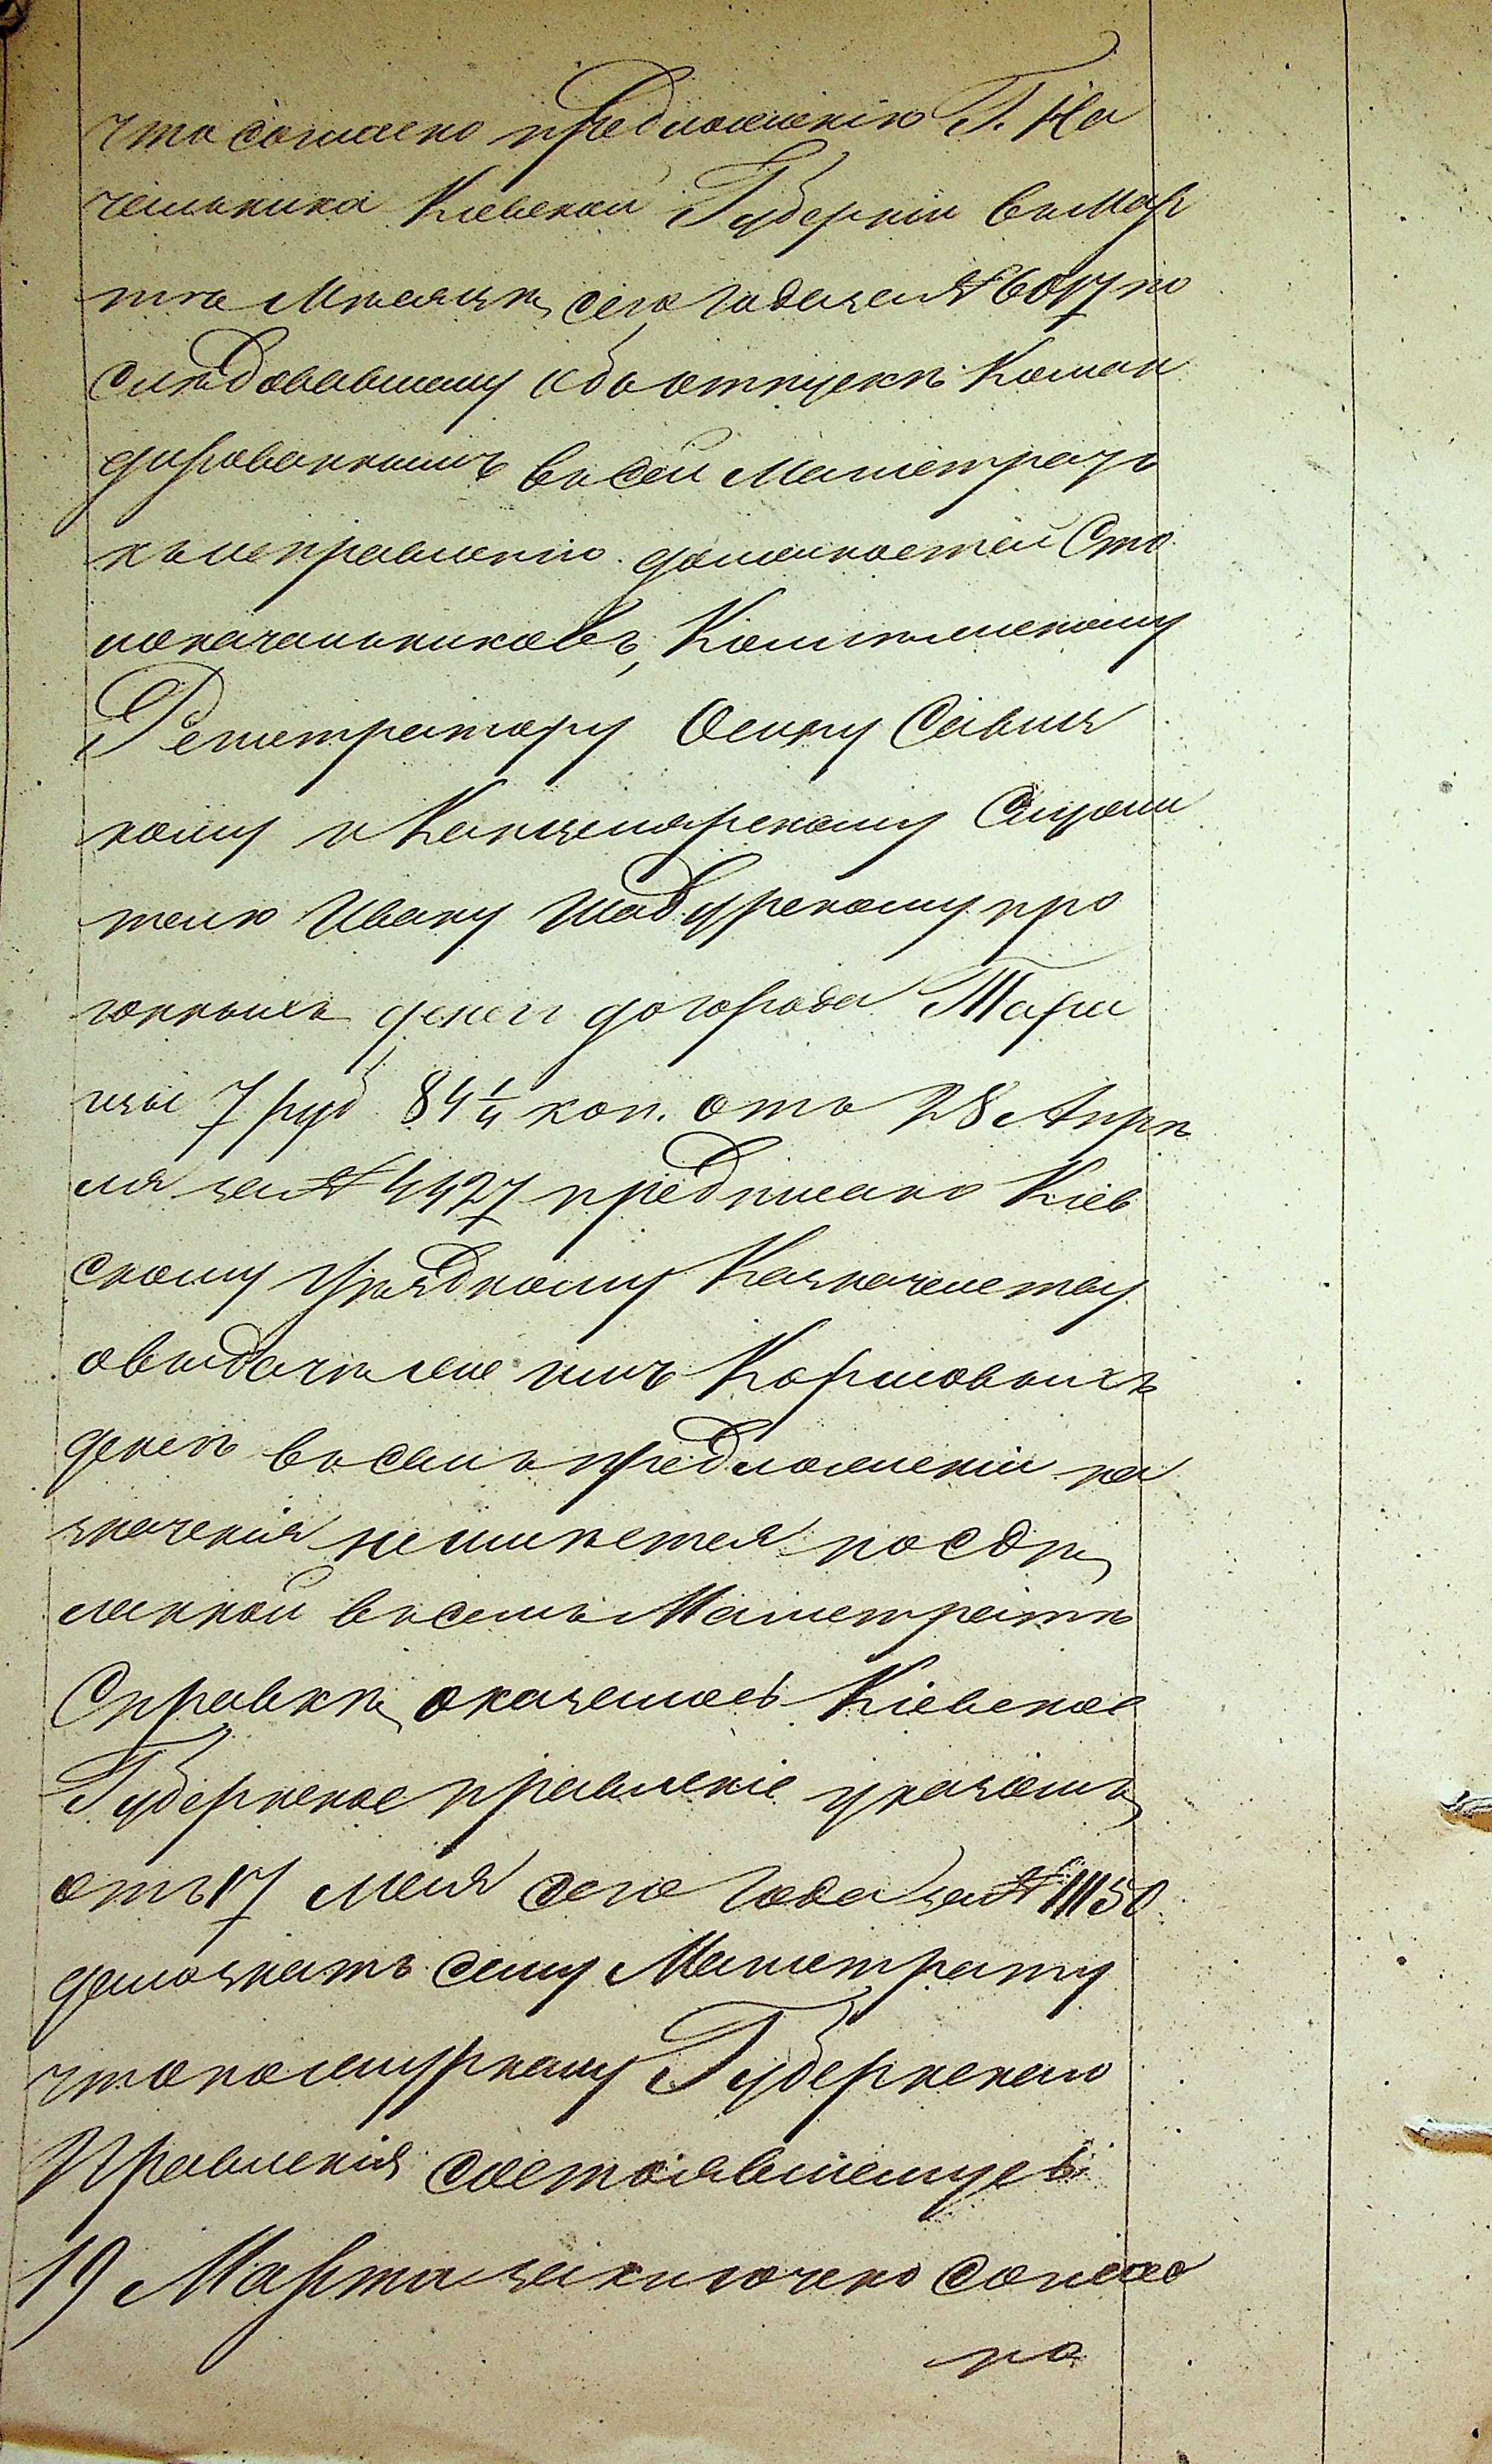 что согласно предложенію Г. На
чальника Кіевской Губерніи въ Мар
тѣ Мѣсяцѣ сего года за № 6017 по
слѣдовавшему объ отпускѣ Коман
дированнымъ въ сей Магистратъ
къ исправленію должностей Сто
лоначальниковъ, Коллежскому
Регистратору Осипу Савиц
кому и Канцелярскому Служи
телю Ивану Шабурскому про
гонныхъ денегъ до города Тара
щи 7 руб 84 1/4 коп. отъ 28 Апрѣ
ля за № 4427 предписано Кіев
скому Уѣздному Казначейству
о выдачѣ же имъ Кормовыхъ
денегъ въ семъ предложеніи на
значенія не имѣется по сдѣ
ланной въ семъ Магистратѣ
Справкѣ оказалось Кіевское
Губернское правленіе указомъ
отъ 17 Мая сего года за № 11150
далъ знать сему Магистрату
что по журналу Губернскаго
Правленія состоявшемуся
19 Марта заключено соглас
но